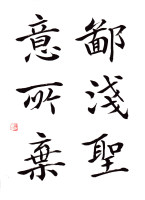 鄙淺聖
意所棄